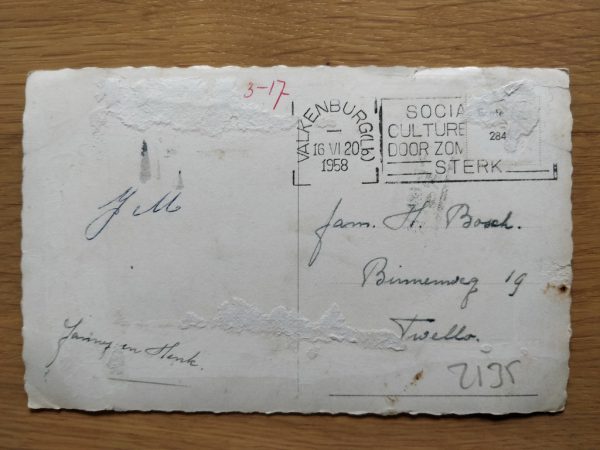 3-17
VALKENBURG (Lb)
16 VI 20
1958
SOCIA
CULTURE
DOOR ZOM
STERK
284
J M
fam. H. Bosch.
Binnenweg 19
Twello.
Janny en Henk.
2135